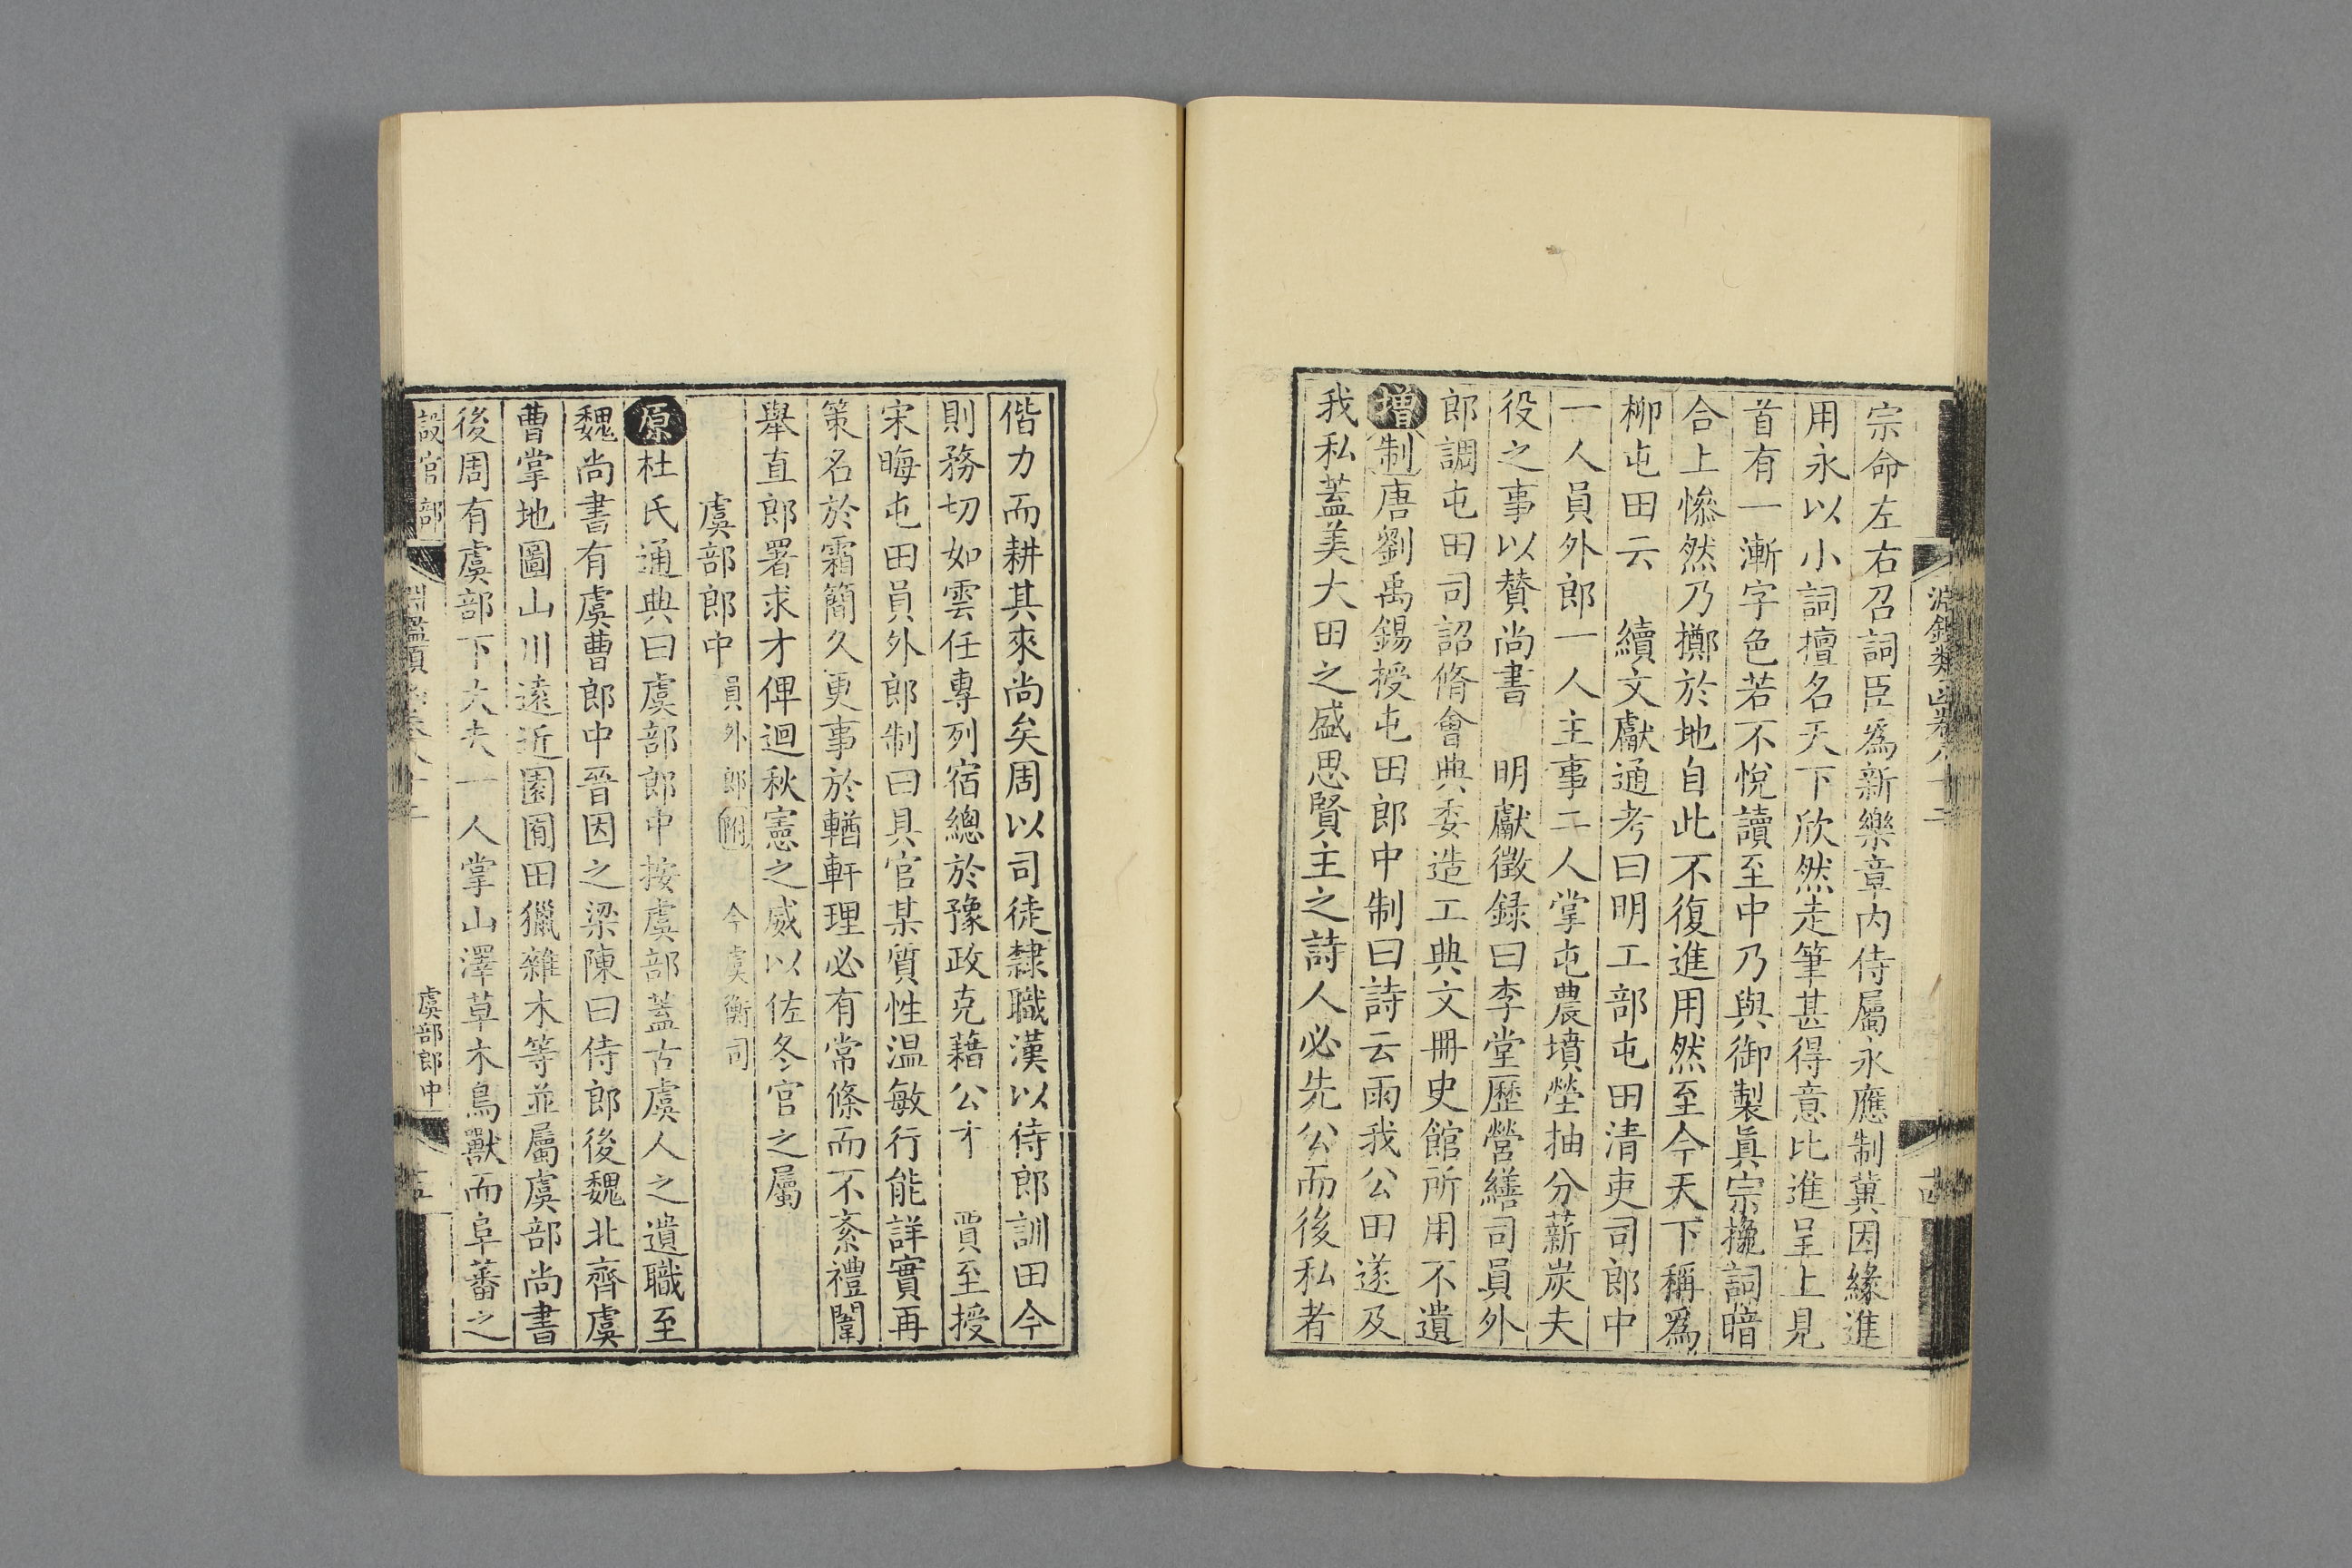 宗命左右召詞臣爲新樂章内侍屬永應制冀因緣進
用永以小詞擅名天下欣然走筆甚得意比進呈上見
首有一漸字色若不悅讀至中乃與御製眞宗挽詞暗
合上慘然乃擲於地自此不復進用然至今天下稱爲
柳屯田云　續文獻通考曰明工部屯田清吏司郎中
一人員外郎一人主事二人掌屯農墳塋抽分薪炭夫
役之事以賛尚書　明獻徵録曰李堂歷營繕司員外
郎調屯田司詔脩會典委造工典文冊史館所用不遺
增制唐劉禹錫授屯田郎中制曰詩云雨我公田遂及
我私葢美大田之盛思賢主之詩人必先公而後私者
淵鑑類函卷八十二
偕力而耕其來尚矣周以司徒隸職漢以侍郎訓田今
則務切如雲任專列宿總於豫政克藉公才　賈至授
宋晦屯田員外郎制曰具官某質性温敏行能詳實再
策名於霜簡久更事於輶軒理必有常條而不紊禮闈
舉直郎署求才俾迴秋憲之威以佐冬官之屬
虞部郎中員外郎附　今虞衡司
原杜氏通典曰虞部郎中按虞部葢古虞人之遺職至
魏尚書有虞曹郎中晉因之梁陳曰侍郎後魏北齊虞
曹掌地圖山川遠近園囿田獵雜木等並屬虞部尚書
後周有虞部下大夫一人掌山澤草木鳥獸而阜蕃之
設官部
淵鑑類函卷八十二
虞部郎中